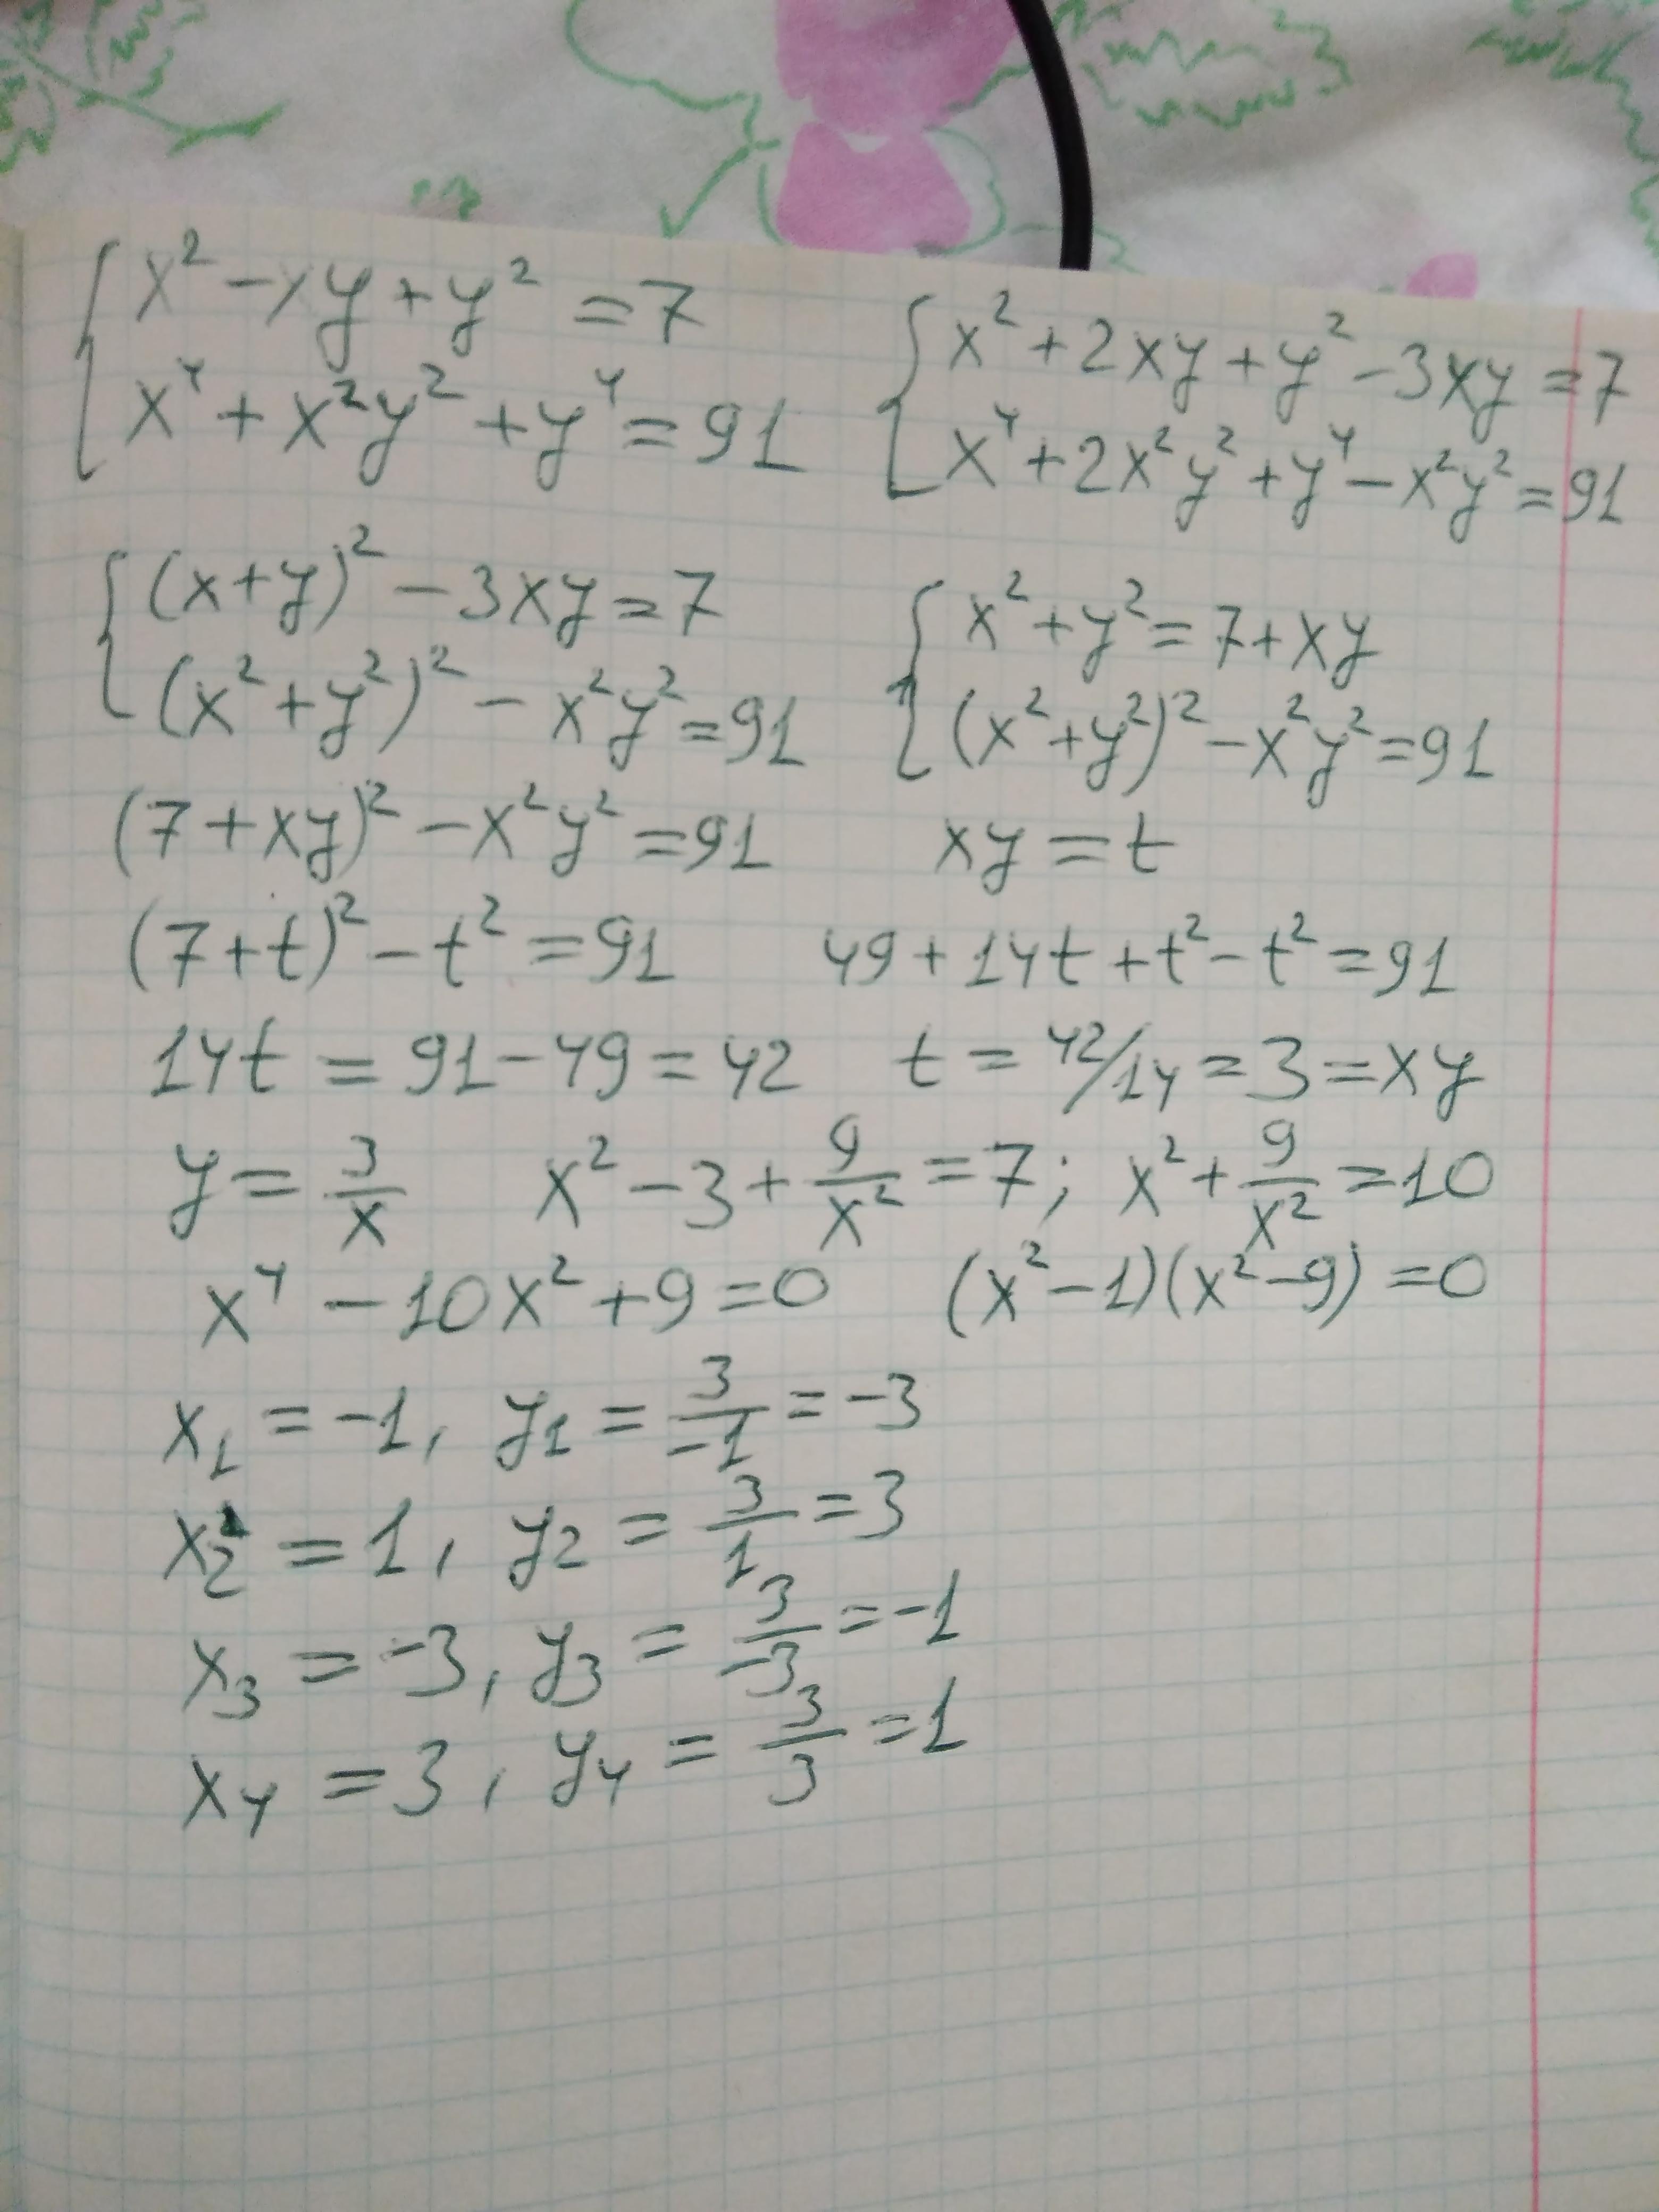 { x² - xy + y² = 7
x⁴ + x²y² + y⁴ = 91
{ x² + 2xy + y² - 3xy = 7
x⁴ + 2x²y² + y⁴ - x²y² = 91
{ (x+y)² - 3xy = 7
(x² + y²)² - x²y² = 91
{ x² + y² = 7 + xy
(x² + y²)² - x²y² = 91
(7 + xy)² - x²y² = 91 xy = t
(7 + t)² - t² = 91 49 + 14t + t² - t² = 91
14t = 91 - 49 = 42 t = 42/14 = 3 = xy
y = 3/x x² - 3 + 9/x² = 7; x² + 9/x² = 10
x⁴ - 10x² + 9 = 0 (x² - 1)(x² - 9) = 0
x₁ = -1, y₁ = 3/-1 = -3
x₂ = 1, y₂ = 3/1 = 3
x₃ = -3, y₃ = 3/-3 = -1
x₄ = 3, y₄ = 3/3 = 1